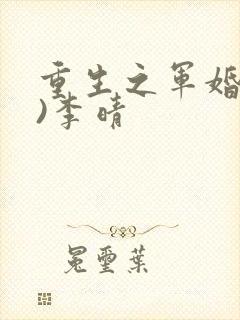 重生之軍婚
)李晴
冕璽葉